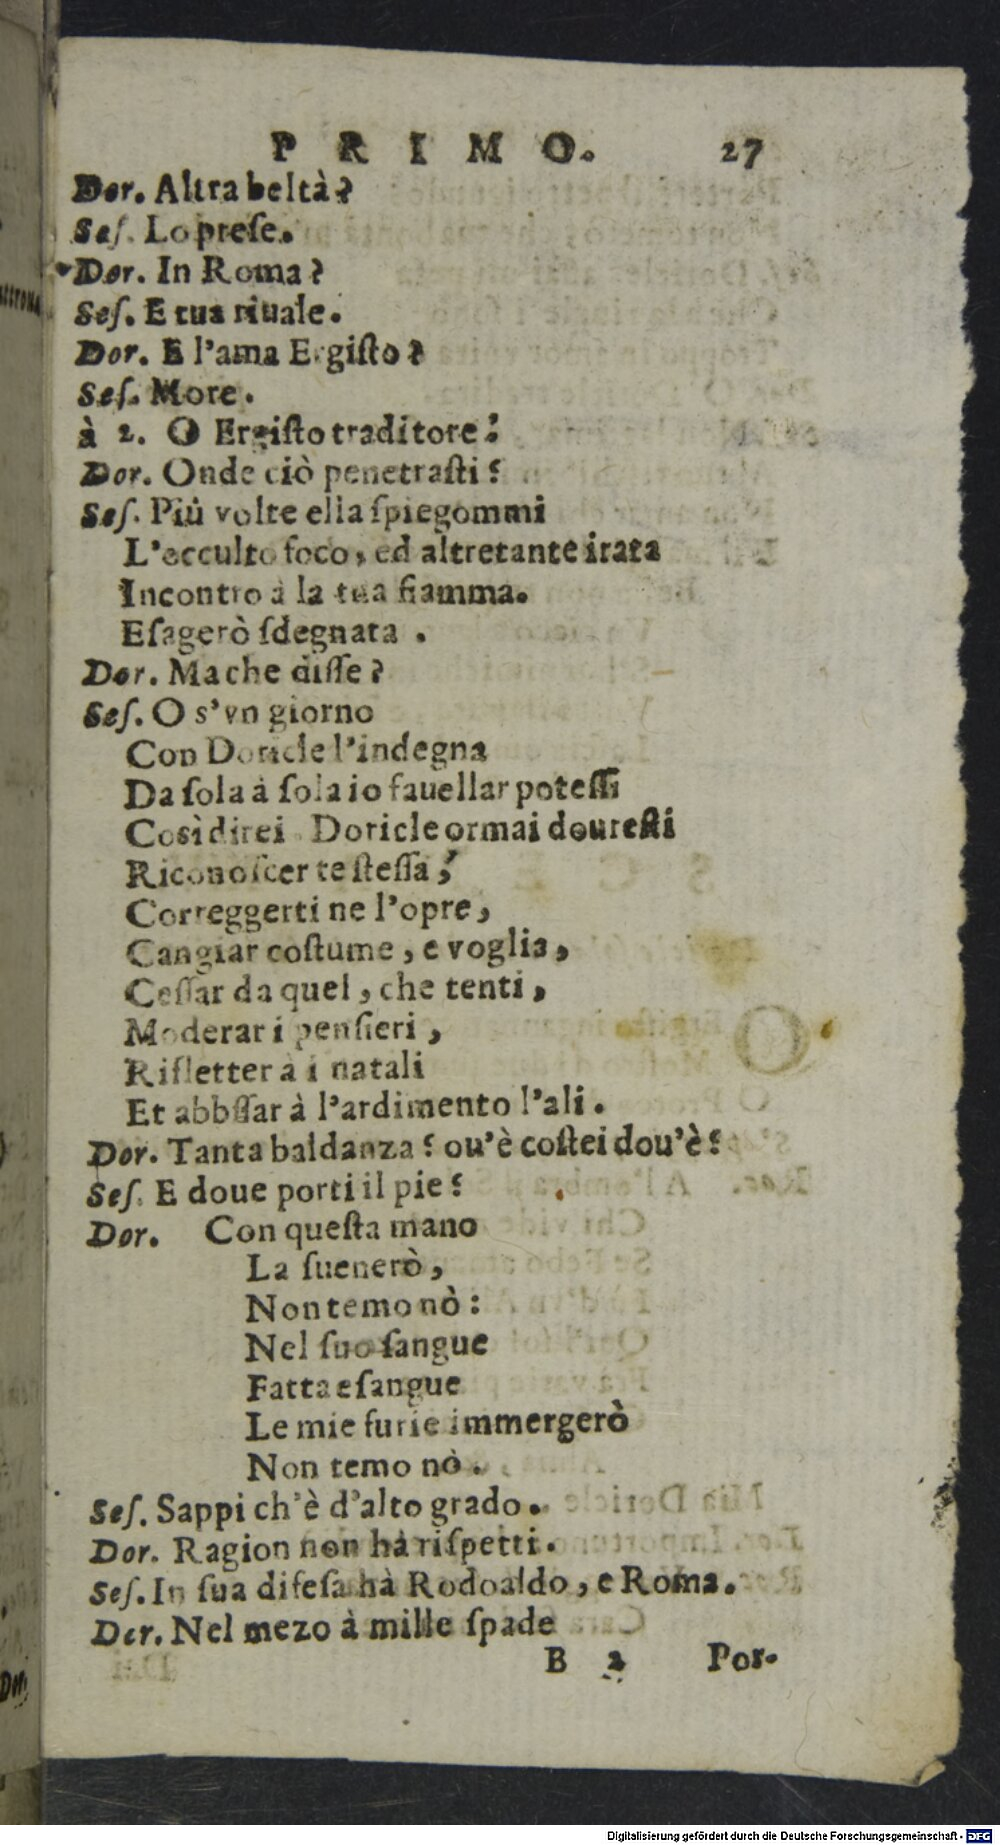 PRIMO. 27
Dor. Altra beltà?
Seſ. Lo preſe.
Dor. In Roma?
Seſ. E tua riuale.
Dor. E l'ama Ergiſto?
Seſ. More.
à 2. O Ergiſto traditore!
Dor. Onde ciò penetraſti?
Seſ. Più volte ella ſpiegommi
L'occulto foco, ed altretante irata
Incontro à la tua fiamma.
Eſagerò ſdegnata.
Dor. Ma che diſſe?
Seſ. O s'vn giorno
Con Doricle l'indegna
Da ſola à ſola io fauellar poteſſi
Così direi Doricle ormai doureſti
Riconoſcer te ſteſſa;
Correggerti ne l'opre,
Cangiar coſtume, e voglia,
Ceſſar da quel, che tenti,
Moderar i penſieri,
Rifletter à i natali
Et abbſſar à l'ardimento l'ali.
Dor. Tanta baldanza? ou'è coſtei dou'è?
Seſ. E doue porti il pie?
Dor. Con queſta mano
La ſuenerò,
Non temo nò:
Nel ſuo ſangue
Fatta eſangue
Le mie furie immergerò
Non temo nò.
Seſ. Sappi ch'è d'alto grado.
Dor. Ragion non hà riſpetti.
Seſ. In ſua difeſa hà Rodoaldo, e Roma.
Dor. Nel mezo à mille ſpade
B 2 Por-
Digitalisierung gefördert durch die Deutsche Forschungsgemeinschaft - DFG